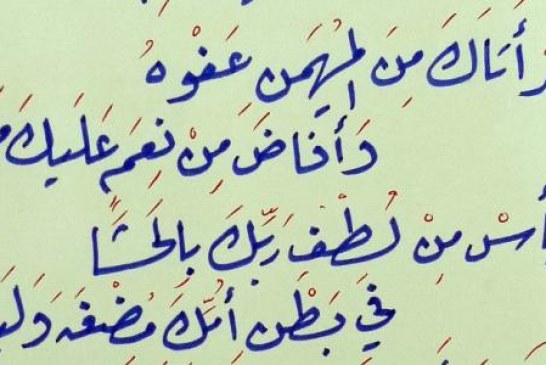 أَتَاكَ مِنَ المُهَيمن عَفْوهُ
وَأَفَاضَ مِنْ نِعَمٍ عَلَيكَ
مِنْ لُطْفِ رَبِّكَ بِالحَشَا
في بَطْنِ أُمِّكَ مُضْغَةً